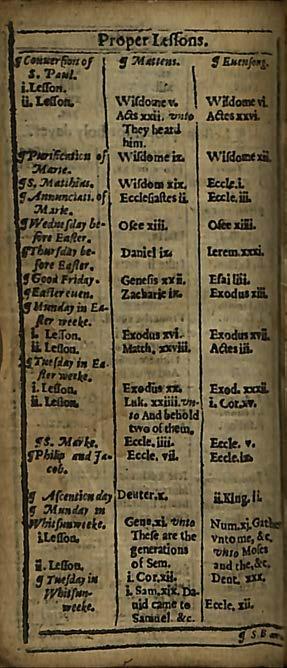 Proper Lessons.
¶ Conversion of ¶ Mattens. ¶ Euensong.
S. Paul.
i. Lesson. Wisdome v. Wisdome vi.
ii. Lesson. Acts xxii. vnto Actes xxvi.
They heard
him.
¶ Purification of Wisdome ix. Wisdome xii.
Marie.
¶ S. Matthias. Wisdom xix. Eccle. i.
¶ Annunciati. of Ecclesiastes ii. Eccle. iii.
Marie.
¶ Wednesday be- Osee xiii. Osee xiiii.
fore Easter.
¶ Thursday be- Daniel ix. Ierem. xxxi.
fore Easter.
¶ Good Friday. Genesis xxii. Esai liii.
¶ Easter euen. Zacharie ix. Exodus xiii.
¶ Munday in Ea-
ster weeke.
i. Lesson. Exodus xvi. Exodus xvii.
ii. Lesson. Matth. xxviii. Actes iii.
¶ Tuesday in Ea-
ster weeke.
i. Lesson. Exodus xx. Exod. xxxii.
ii. Lesson. Luk. xxiiii. vn- i. Cor. xv.
to And behold
two of them.
¶ S. Marke. Eccle. iiii. Eccle. v.
¶ Philip and Ja- Eccle. vii. Eccle. ix.
cob.
¶ Ascention day Deuter. x. ii. King. ii.
¶ Munday in
Whitsunweeke. Gene. xi. vnto Num. xi. Gather
i. Lesson. These are the vnto me, &c.
generations vnto Moses
ii. Lesson. of Sem. and the, &c.
¶ Tuesday in i. Cor. xii. Deut. xxx.
Whitsun- i. Sam. xix. Da-
weeke. uid came to Eccle. xii.
Samuel. &c.
¶ S. B